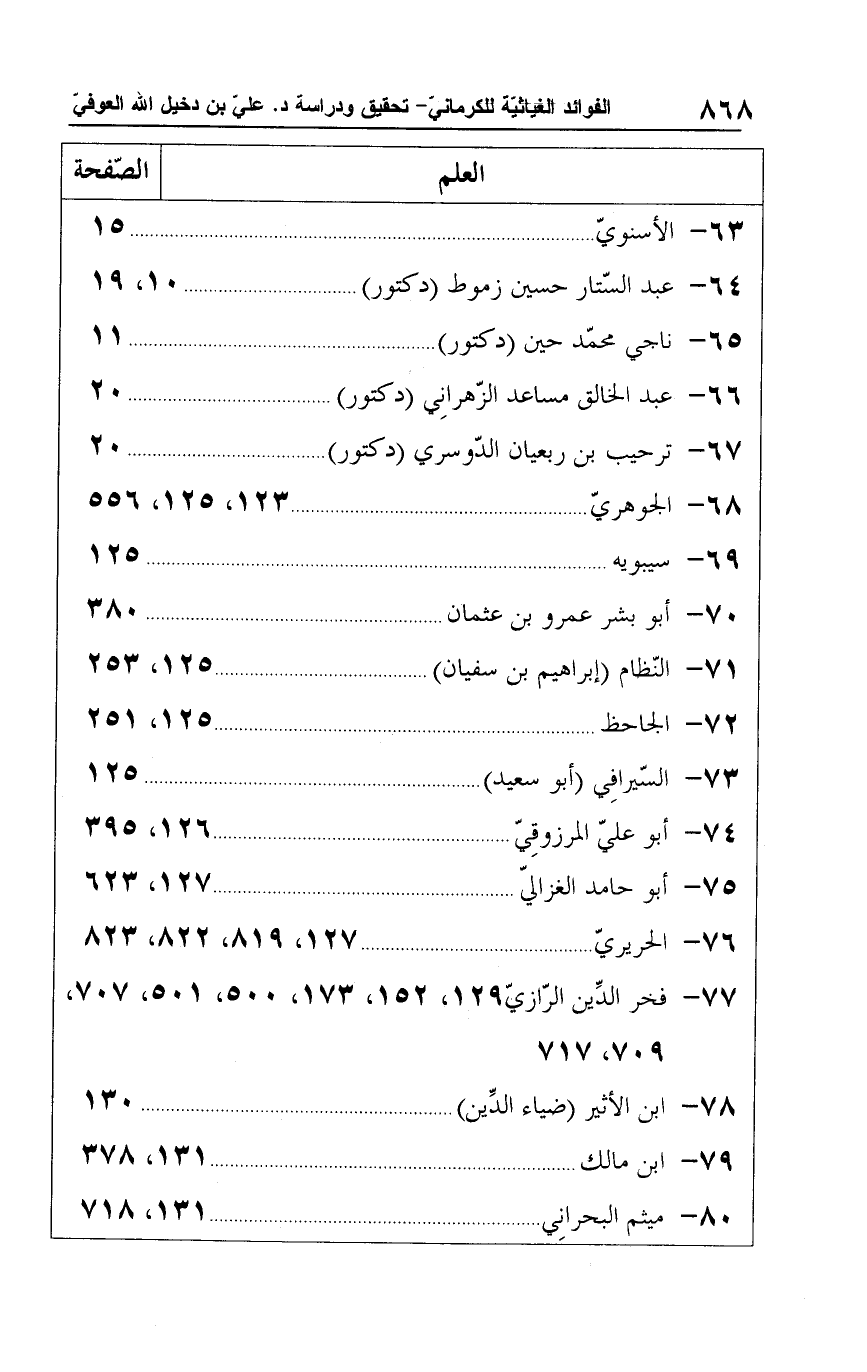 ٨٦٨ الفوائد الغياثيّة للكرمانيّ- تحقيق ودراسة د. عليّ بن دخيل الله العوفيّ
العلم الصّفحة
٦٣- الأسنويّ ............ ١٥
٦٤- عبد السّتار حسين زموط (دكتور) ............ ١٠، ١٩
٦٥- ناجي محمّد حين (دكتور) ............ ١١
٦٦- عبد الخالق مساعد الزّهرانِي (دكتور) ............ ٢٠
٦٧- ترحيب بن ربعيان الدّوسري (دكتور) ............ ٢٠
٦٨- الجوهريّ ............ ١٢٣، ١٢٥، ٥٥٦
٦٩- سيبويه ............ ١٢٥
٧٠- أبو بشر عمرو بن عثمان ............ ٣٨٠
٧١- النّظام (إبراهيم بن سفيان) ............ ١٢٥، ٢٥٣
٧٢- الجاحظ ............ ١٢٥، ٢٥١
٧٣- السّيرافِي (أبو سعيد) ............ ١٢٥
٧٤- أبو عليّ المرزوقِيّ ............ ١٢٦، ٣٩٥
٧٥- أبو حامد الغزاليّ ............ ١٢٧، ٦٢٣
٧٦- الحريريّ ............ ١٢٧، ٨١٩، ٨٢٢، ٨٢٣
٧٧- فخر الدِّين الرّازيّ ١٢٩، ١٥٢، ١٧٣، ٥٠٠، ٥٠١، ٧٠٧،
٧٠٩، ٧١٧
٧٨- ابن الأثير (ضياء الدِّين) ............ ١٣٠
٧٩- ابن مالك ............ ١٣١، ٣٧٨
٨٠- ميثم البحرانِي ............ ١٣١، ٧١٨